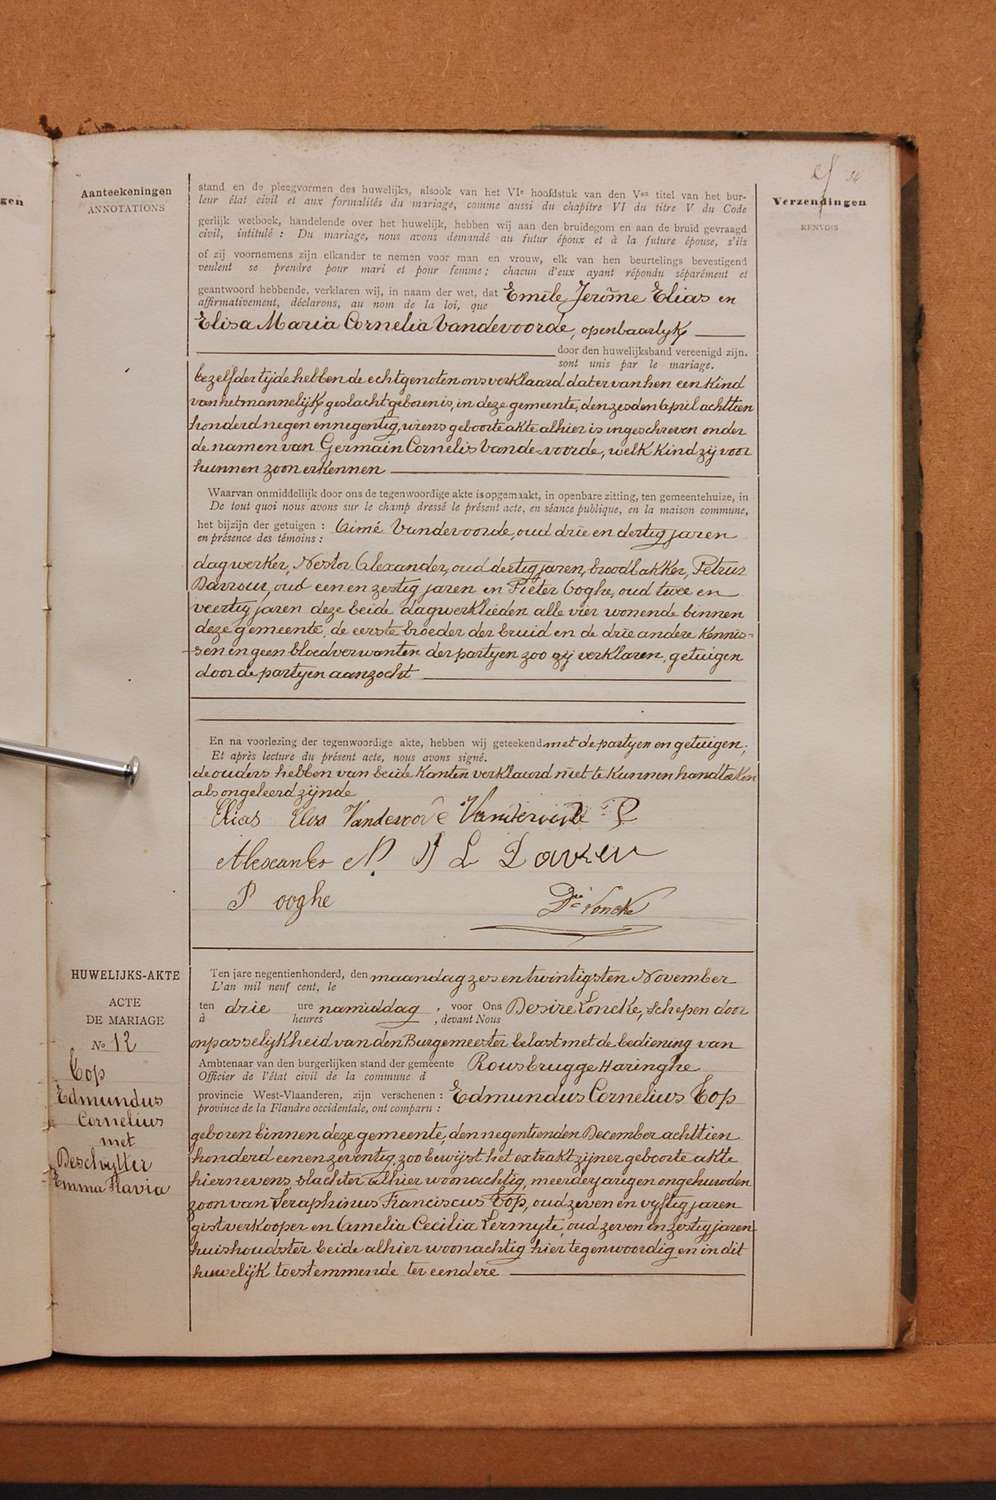 gen
Aanteekeningen
ANNOTATIONS
Verzendingen
RENVOIS
stand en de pleegvormen des huwelijks, alsook van het VIe hoofdstuk van den Ven titel van het bur-
leur état civil et aux formalités du mariage, comme aussi du chapitre VI du titre V du Code
gerlijk wetboek, handelende over het huwelijk, hebben wij aan den bruidegom en aan de bruid gevraagd
civil, intitulé : Du mariage, nous avons demandé au futur époux et à la future épouse, s'ils
of zij voornemens zijn elkander te nemen voor man en vrouw, elk van hen beurtelings bevestigend
veulent se prendre pour mari et pour femme : chacun d'eux ayant répondu séparément et
geantwoord hebbende, verklaren wij, in naam der wet, dat Emile Jerôme Elias en
affirmativement, déclarons, au nom de la loi, que
Elisa Maria Cornelia Vandevoorde, openbaarlijk
door den huwelijksband vereenigd zijn.
sont unis par le mariage.
bezelfdertijde hebben de echtgenoten ons verklaard dat er van hen een kind
van het mannelijk geslacht geboren is, in deze gemeente, den zesden April achttien
honderd negen en negentig, wiens geboorteakte alhier is ingeschreven onder
de namen van Germain Cornelis Vande-voorde, welk kind zij voor
hunnen zoon erkennen
Waarvan onmiddelijk door ons de tegenwoordige akte is opgemaakt, in openbare zitting, ten gemeentehuize, in
De tout quoi nous avons sur le champ dressé le présent acte, en séance publique, en la maison commune,
het bijzijn der getuigen : Aimé Vandevoorde, oud drie en dertig jaren
en présence des témoins :
dagwerker, Nestor Alexander, oud dertig jaren, broodbakker, Petrus
Davrou, oud een en zestig jaren en Pieter Ooghe, oud twee en
veertig jaren deze beide dagwerklieden alle vier wonende binnen
deze gemeente, de eerste broeder der bruid en de drie andere kennis-
sen en geen bloedverwanten der partyen zoo zij verklaren, getuigen
door de partyen aanzocht
En na voorlezing der tegenwoordige akte, hebben wij geteekend met de partyen en getuigen,
Et après lecture du présent acte, nous avons signé.
de ouders hebben van beide kanten verklaard niet te kunnen handteeken
als ongeleerd zijnde
Elias Elisa Vandevoorde Vandevoorde
Alexander N. L Davreu
P ooghe Dre Loncke
HUWELIJKS-AKTE
ACTE
DE MARIAGE
No 12
Top
Edmundus
Cornelius
met
Deschytter
Emma Flavia
Ten jare negentienhonderd, den maandag zes en twintigsten November
L'an mil neuf cent, le
ten drie ure namiddag, voor Ons Desiré Loncke, Schepen door
à heures , devant Nous
onpasselijkheid van den Burgemeester belast met de bediening van
Ambtenaar van den burgerlijken stand der gemeente Rousbrugge Haringhe
Officier de l'état civil de la commune d
provincie West-Vlaanderen, zijn verschenen : Edmundus Cornelius Top
province de la Flandre occidentale, ont comparu :
geboren binnen deze gemeente, den negentienden December achttien
honderd een en zeventig, zoo bewijst het extrakt zijner geboorte akte
hiernevens, slachter alhier woonachtig, meerderjarigen ongehuwden
zoon van Seraphinus Franciscus Top, oud zeven en vyftig jaren
gistverkooper en Amelia Cecilia Lermyte, oud zeven en zestig jaren
huishoudster beide alhier woonachtig hier tegenwoordig en in dit
huwelijk toestemmende ter eendere